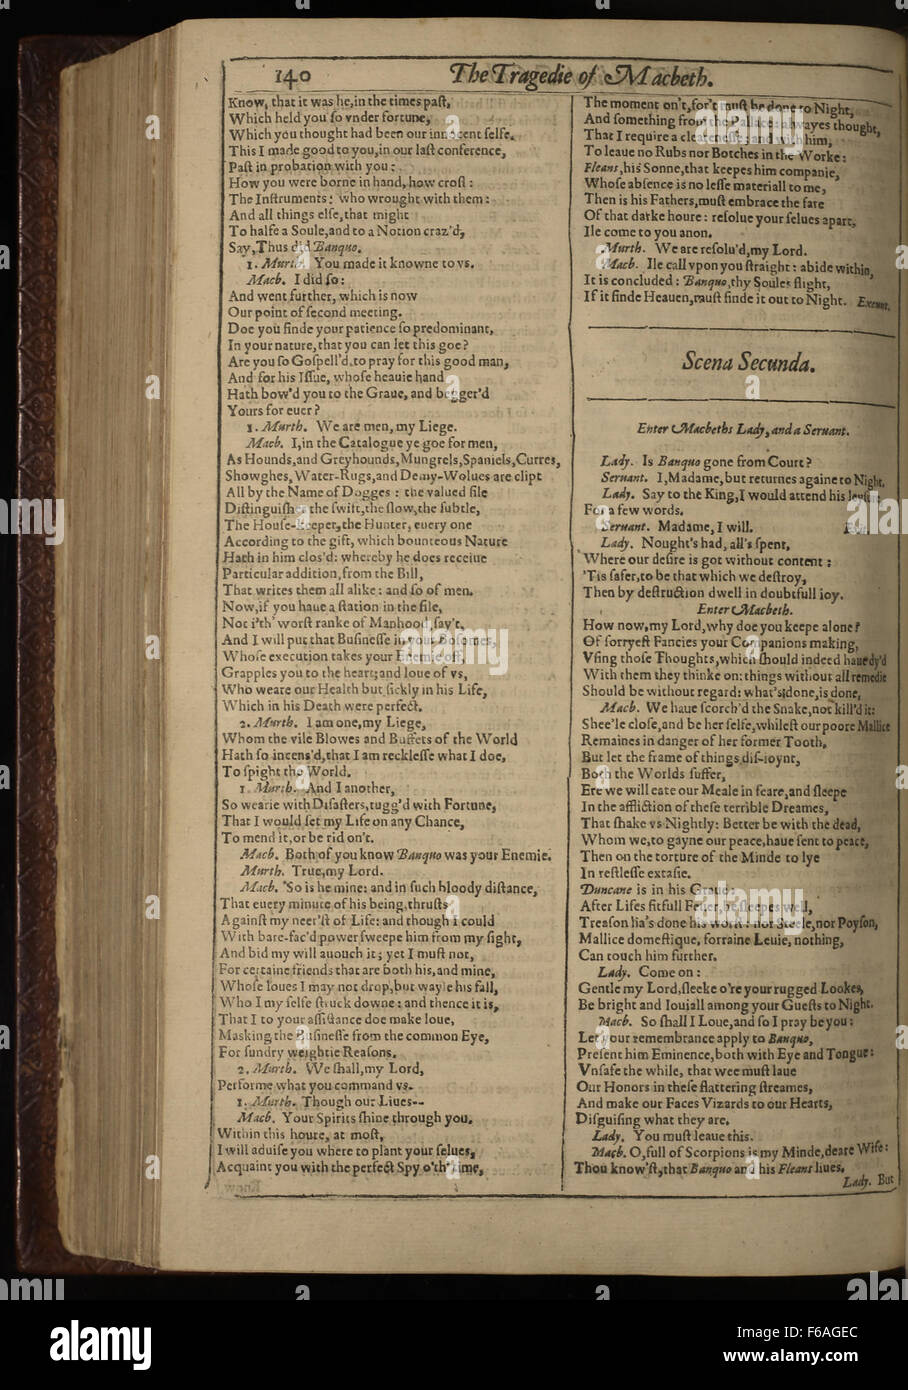 140
The Tragedie of Macbeth.
Know, that it was he, in the times paſt,
Which held you ſo vnder fortune,
Which you thought had been our innocent ſelfe.
This I made good to you, in our laſt conference,
Paſt in probation with you:
How you were borne in hand, how croſt:
The Inſtruments: who wrought with them:
And all things elſe, that might
To halfe a Soule, and to a Notion craz'd,
Say, Thus did Banquo.
1. Murth. You made it knowne to vs.
Macb. I did ſo:
And went further, which is now
Our point of ſecond meeting.
Doe you finde your patience ſo predominant,
In your nature, that you can let this goe?
Are you ſo Goſpell'd, to pray for this good man,
And for his Iſſue, whoſe heauie hand
Hath bow'd you to the Graue, and begger'd
Yours for euer?
1. Murth. We are men, my Liege.
Macb. I, in the Catalogue ye goe for men,
As Hounds, and Greyhounds, Mungrels, Spaniels, Curres,
Showghes, Water-Rugs, and Demy-Wolues are clipt
All by the Name of Dogges: the valued file
Diſtinguiſhes the ſwift, the ſlow, the ſubtle,
The Houſe-keeper, the Hunter, euery one
According to the gift, which bounteous Nature
Hath in him clos'd: whereby he does receiue
Particular addition, from the Bill,
That writes them all alike: and ſo of men.
Now, if you haue a ſtation in the file,
Not i'th' worſt ranke of Manhood, ſay't,
And I will put that Buſineſſe in your Boſomes,
Whoſe execution takes your Enemie off,
Grapples you to the heart; and loue of vs,
Who weare our Health but ſickly in his Life,
Which in his Death were perfect.
2. Murth. I am one, my Liege,
Whom the vile Blowes and Buffets of the World
Hath ſo incens'd, that I am reckleſſe what I doe,
To ſpight the World.
1. Murth. And I another,
So wearie with Diſaſters, tugg'd with Fortune,
That I would ſet my Life on any Chance,
To mend it, or be rid on't.
Macb. Both of you know Banquo was your Enemie.
Murth. True, my Lord.
Macb. So is he mine: and in ſuch bloody diſtance,
That euery minute of his being, thruſts
Againſt my neer'ſt of Life: and though I could
With bare-fac'd power ſweepe him from my ſight,
And bid my will auouch it; yet I muſt not,
For certaine friends that are both his, and mine,
Whoſe loues I may not drop, but wayle his fall,
Who I my ſelfe ſtruck downe: and thence it is,
That I to your aſſiſtance doe make loue,
Masking the Buſineſſe from the common Eye,
For ſundry weightie Reaſons.
2. Murth. We ſhall, my Lord,
Performe what you command vs.
1. Murth. Though our Liues--
Macb. Your Spirits ſhine through you.
Within this houre, at moſt,
I will aduiſe you where to plant your ſelues,
Acquaint you with the perfect Spy o'th' time,
The moment on't, for't muſt be done to Night,
And ſomething from the Pallace: alwayes thought,
That I require a cleareneſſe; and with him,
To leaue no Rubs nor Botches in the Worke:
Fleans, his Sonne, that keepes him companie,
Whoſe abſence is no leſſe materiall to me,
Then is his Fathers, muſt embrace the fate
Of that darke houre: reſolue your ſelues apart,
Ile come to you anon.
Murth. We are reſolu'd, my Lord.
Macb. Ile call vpon you ſtraight: abide within,
It is concluded: Banquo, thy Soules flight,
If it finde Heauen, muſt finde it out to Night. Exeunt.
Scena Secunda.
Enter Macbeths Lady, and a Seruant.
Lady. Is Banquo gone from Court?
Seruant. I, Madame, but returnes againe to Night.
Lady. Say to the King, I would attend his leyſure,
For a few words.
Seruant. Madame, I will. Exit.
Lady. Nought's had, all's ſpent,
Where our deſire is got without content:
'Tis ſafer, to be that which we deſtroy,
Then by deſtruction dwell in doubtfull ioy.
Enter Macbeth.
How now, my Lord, why doe you keepe alone?
Of ſorryeſt Fancies your Companions making,
Vſing thoſe Thoughts, which ſhould indeed haue dy'd
With them they thinke on: things without all remedie
Should be without regard: what's done, is done.
Macb. We haue ſcorch'd the Snake, not kill'd it:
Shee'le cloſe, and be her ſelfe, whileſt our poore Mallice
Remaines in danger of her former Tooth.
But let the frame of things diſ-ioynt,
Both the Worlds ſuffer,
Ere we will eate our Meale in feare, and ſleepe
In the affliction of theſe terrible Dreames,
That ſhake vs Nightly: Better be with the dead,
Whom we, to gayne our peace, haue ſent to peace,
Then on the torture of the Minde to lye
In reſtleſſe extaſie.
Duncane is in his Graue:
After Lifes fitfull Feuer, he ſleepes well,
Treaſon ha's done his worſt: nor Steele, nor Poyſon,
Mallice domeſtique, forraine Leuie, nothing,
Can touch him further.
Lady. Come on:
Gentle my Lord, ſleeke o're your rugged Lookes,
Be bright and Iouiall among your Gueſts to Night.
Macb. So ſhall I Loue, and ſo I pray be you:
Let your remembrance apply to Banquo,
Preſent him Eminence, both with Eye and Tongue:
Vnſafe the while, that wee muſt laue
Our Honors in theſe flattering ſtreames,
And make our Faces Vizards to our Hearts,
Diſguiſing what they are.
Lady. You muſt leaue this.
Macb. O, full of Scorpions is my Minde, deare Wife:
Thou know'ſt, that Banquo and his Fleans liues.
Lady. But
alamy
alamy
alamy
alamy
Image ID: F6AGEC
www.alamy.com